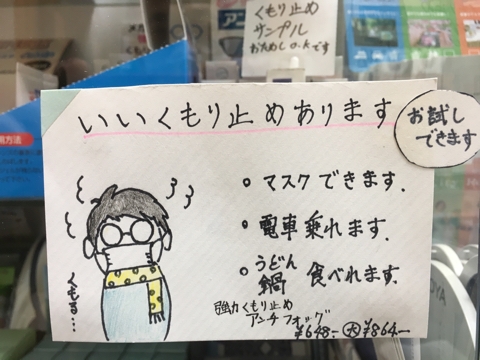 くもり止め
サンプル
おためし O.Kです
いいくもり止めあります
お試し
できます
。マスクできます.
。電車乗れます.
。うどん
鍋 食べれます.
くもる…
強力くもり止め
アンチフォッグ
¥648- 大 ¥864-